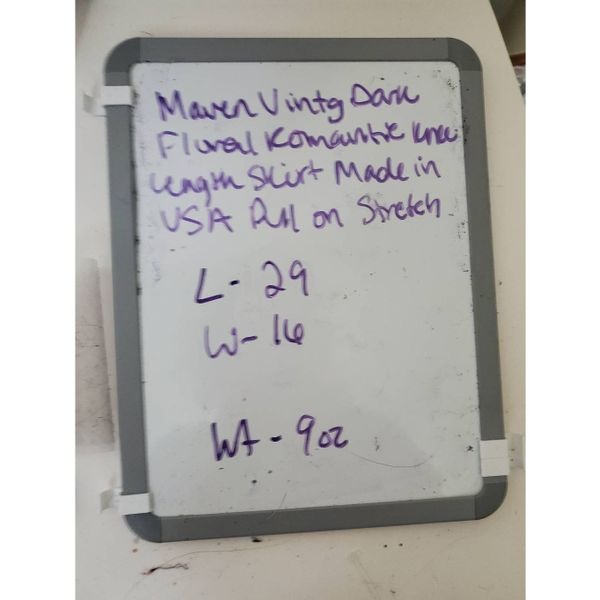 Maven Vintg Dark
Floral Romantic knee
length Skirt Made in
USA Pull on Stretch
L- 29
W- 16
Wt - 9oz